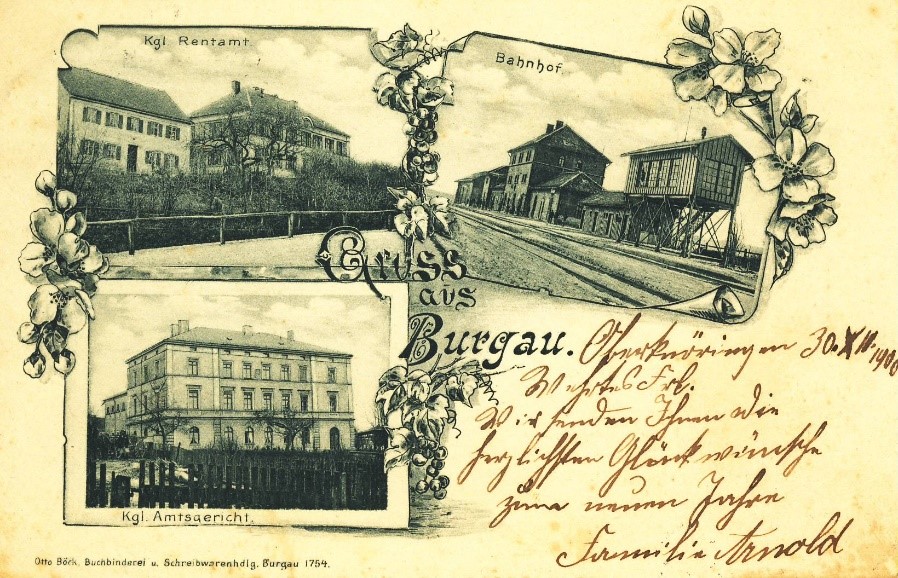 Kgl. Rentamt.
Bahnhof.
Gruss
aus
Burgau.
Kgl. Amtsgericht.
Oberknöringen 30.XII.1900
Wehrtes Frl.
Wir senden Ihnen die
herzlichsten Glückwünsche
zum neuen Jahre
Familie Arnold
Otto Böck, Buchbinderei u. Schreibwarenhdlg. Burgau 1754.